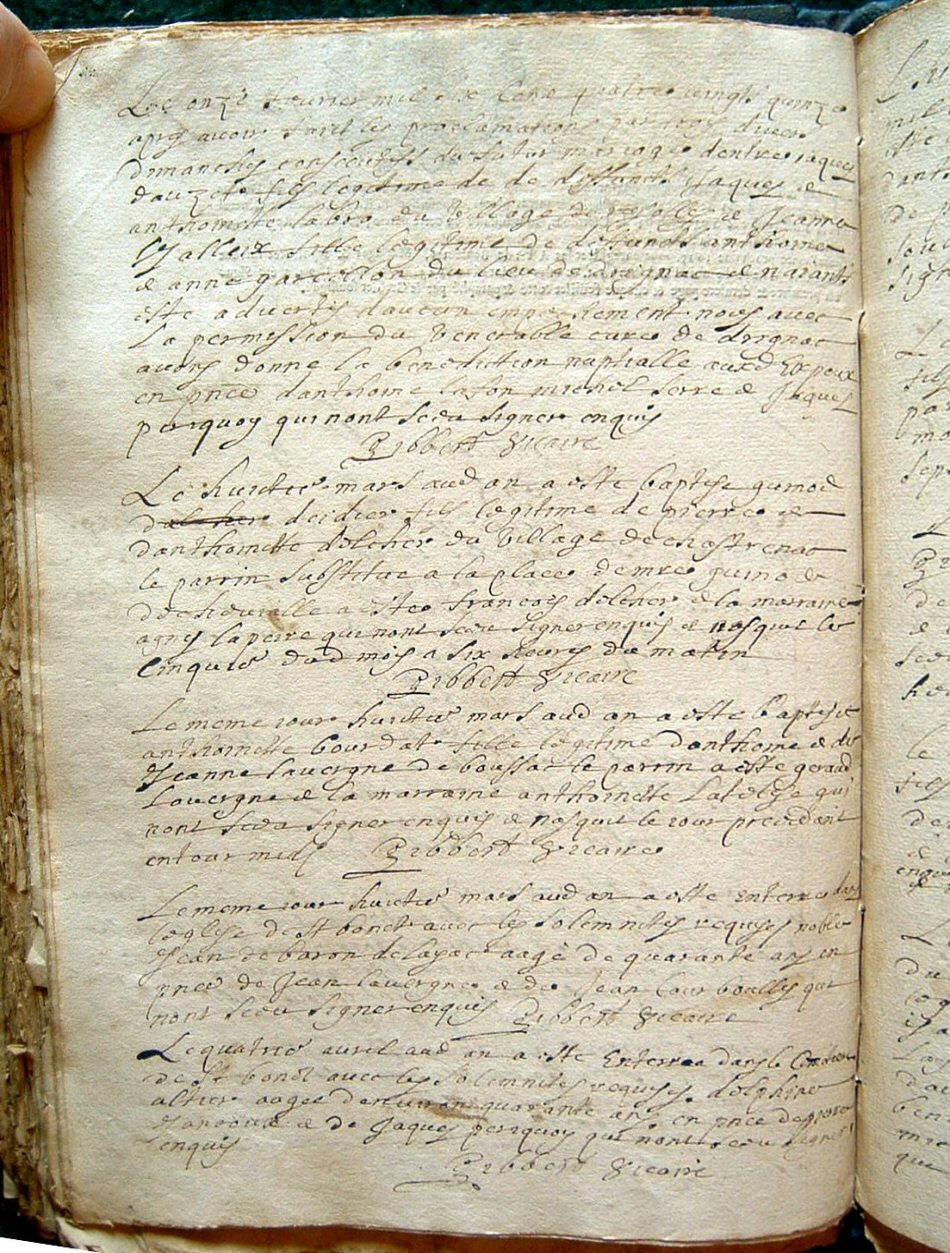 Le onzie feurier mil six cens quatre vingts quinze
apres auoir faict les proclamations par trois diuers
dimanches consecutifs du futur mariage dentre iaques
dauzet fils legitime de de deffuncts Jaques et
anthoinette labro du village de et Jeanne
Valleix fille legitime de defuncts anthoine
et anne garcelon du lieu de drignac et nayants
este advertis daucun empechement nous avec
la permission du venerable cure de drignac
auons donne la benediction nuptialle ausd Espoux
en pnce danthoine lafon michel serre et Jaques
periquoy qui nont sceu signer enquis
Ribbert Vicaire
Le huictie mars aud an a este baptise guinot
deidier fils legitime de pierre et
danthoinette delcher du village de chastrenac
le parrin substitue a la place de mre guinot
de a este francois delcher et la marraine
agnes lapeire qui nont sceu signer enquis et nasquit le
Cinquie dud mois a six heures du matin
Ribbert Vicaire
Le meme iour huictie mars aud an a este baptisee
anthoinette bourdat fille legitime danthoine et de
Jeanne lauergne de boussac le parrin a este geraud
Lauergne et la marraine anthoinette qui
nont sceu signer enquis et nasquit le iour precedant
entour midi Ribbert Vicaire
Le meme iour huictie mars aud an a este Enterre dans
leglise de st bonet auec les solemnites requises noble
Jean de baron delayac aage de quarante ans en
pnce de Jean lauergne et de Jean courboulles qui
nont sceu signer enquis Ribbert Vicaire
Le quatrie auril aud an a este Enterree dans le
de st bonet auec les solemnites requises delphine
altier aagee denuiron quarante ans en pnce de pierre
et de Jaques periquoy qui nont sceu signer
enquis
Ribbert Vicaire